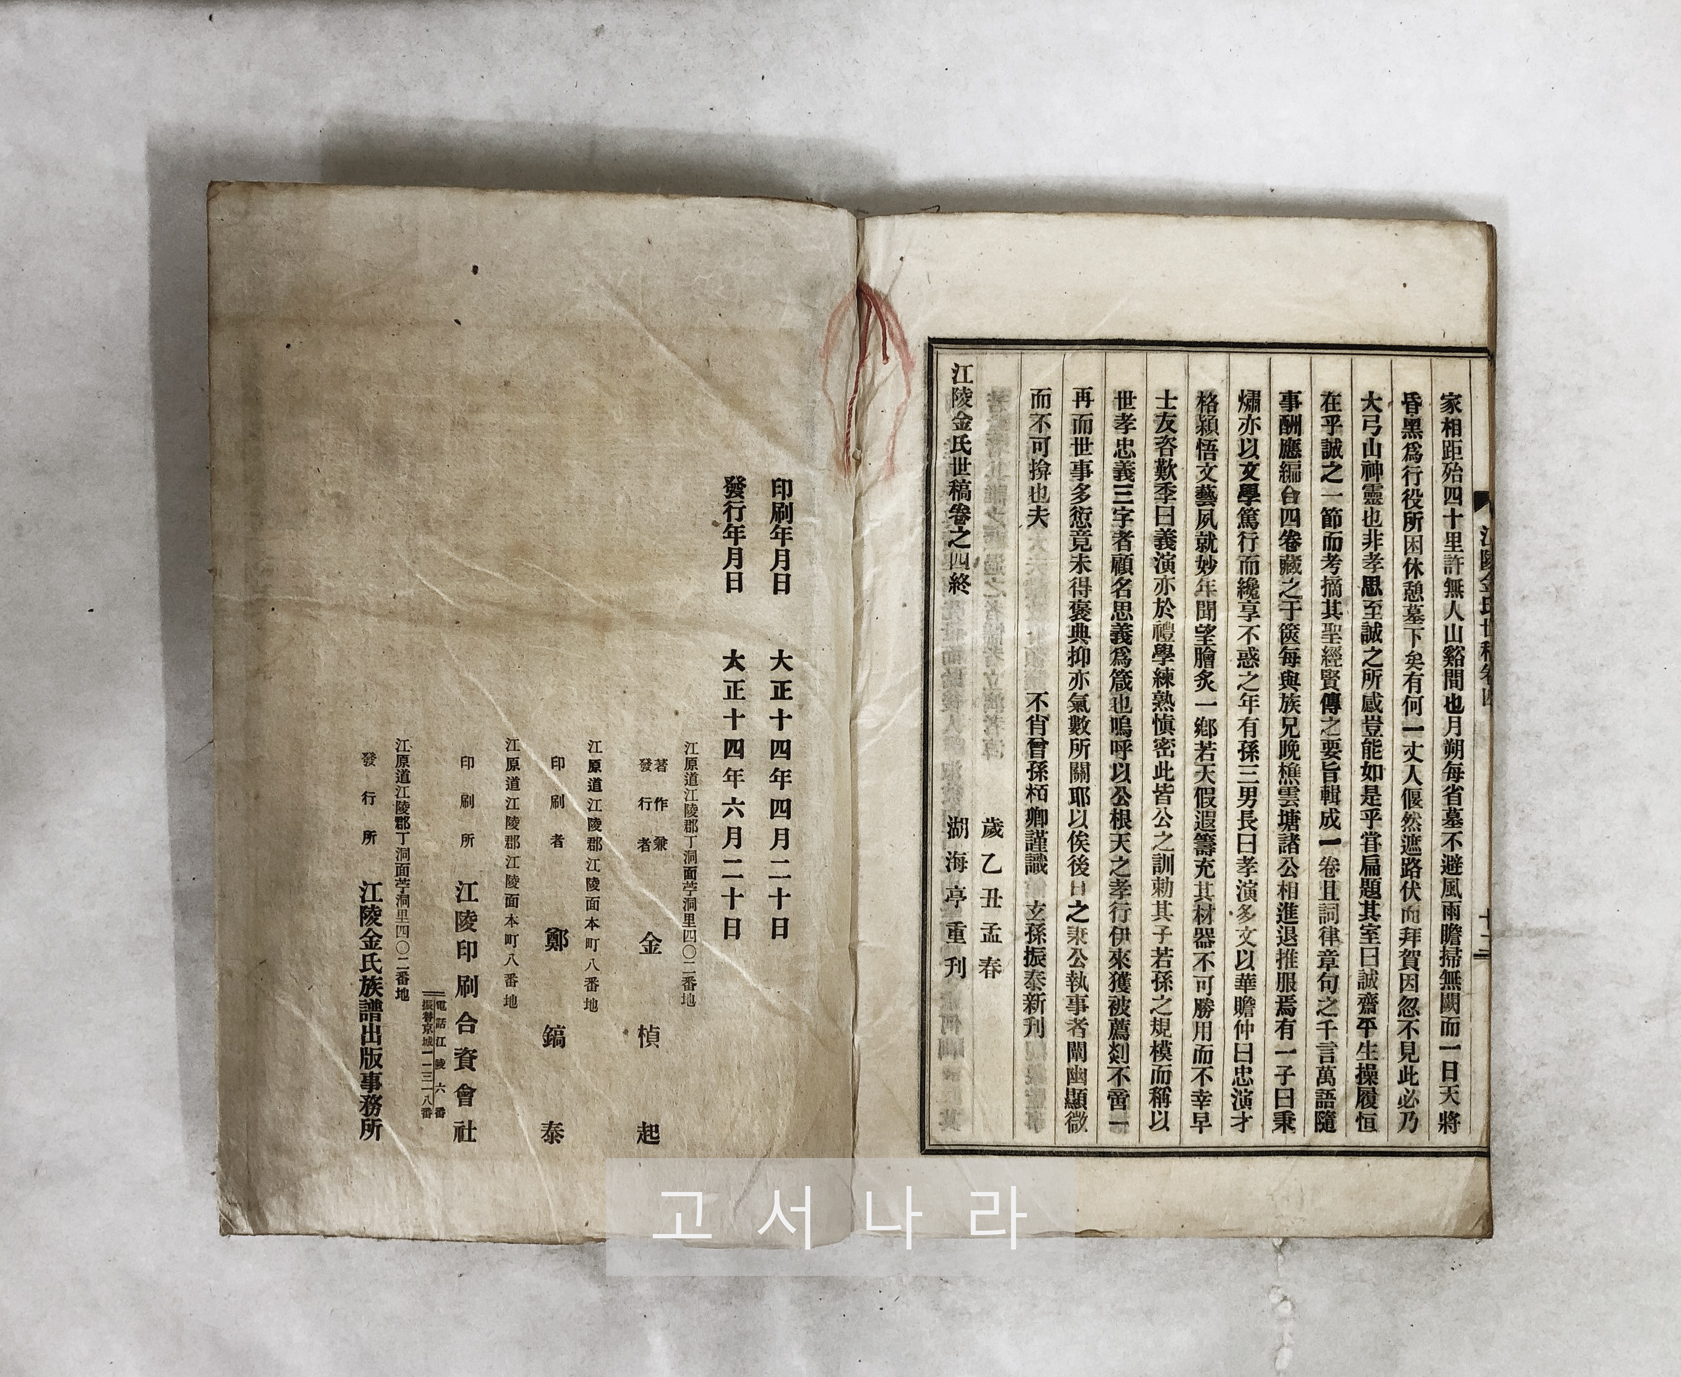 家相距殆四十里許無人山谿間也月朔每省墓不避風雨瞻掃無闕而一日天將
昏黑爲行役所困休憩墓下矣有何一丈人偃然遮路伏而拜賀因忽不見此必乃
大弓山神靈也非孝思至誠之所感豈能如是乎當扁題其室曰誠齋平生操履恒
在乎誠之一節而考摘其聖經賢傳之要旨輯成一卷且詞律章句之千言萬語隨
事酬應編合四卷藏之于篋每與族兄晚樵雲塘諸公相進退推服焉有一子曰秉
爀亦以文學篤行而纔享不惑之年有孫三男長曰孝演多文以華贍仲曰忠演才
格穎悟文藝夙就妙年聞望膾炙一鄕若天假遐籌充其材器不可勝用而不幸早
士友咨歎季曰義演亦於禮學練熟愼密此皆公之訓勅其子若孫之規模而稱以
世孝忠義三字者顧名思義爲箴也嗚呼以公根天之孝行伊來獲被薦剡不啻一
再而世事多愆竟未得褒典抑亦氣數所關耶以俟後日之秉公執事者闡幽顯微
而不可揜也夫
不肖曾孫栢卿謹識 玄孫振泰新刊
歲乙丑孟春
湖海亭重刊
江陵金氏世稿卷之四終
江陵金氏世稿卷四
十二
印刷年月日 大正十四年四月二十日
發行年月日 大正十四年六月二十日
江原道江陵郡丁洞面苧洞里四〇二番地
著作兼
發行者 金楨起
江原道江陵郡江陵面本町八番地
印刷者 鄭鎬泰
江原道江陵郡江陵面本町八番地
印刷所 江陵印刷合資會社
電話江陵六番
振替京城一二三一八番
江原道江陵郡丁洞面苧洞里四〇二番地
發行所 江陵金氏族譜出版事務所
고서나라